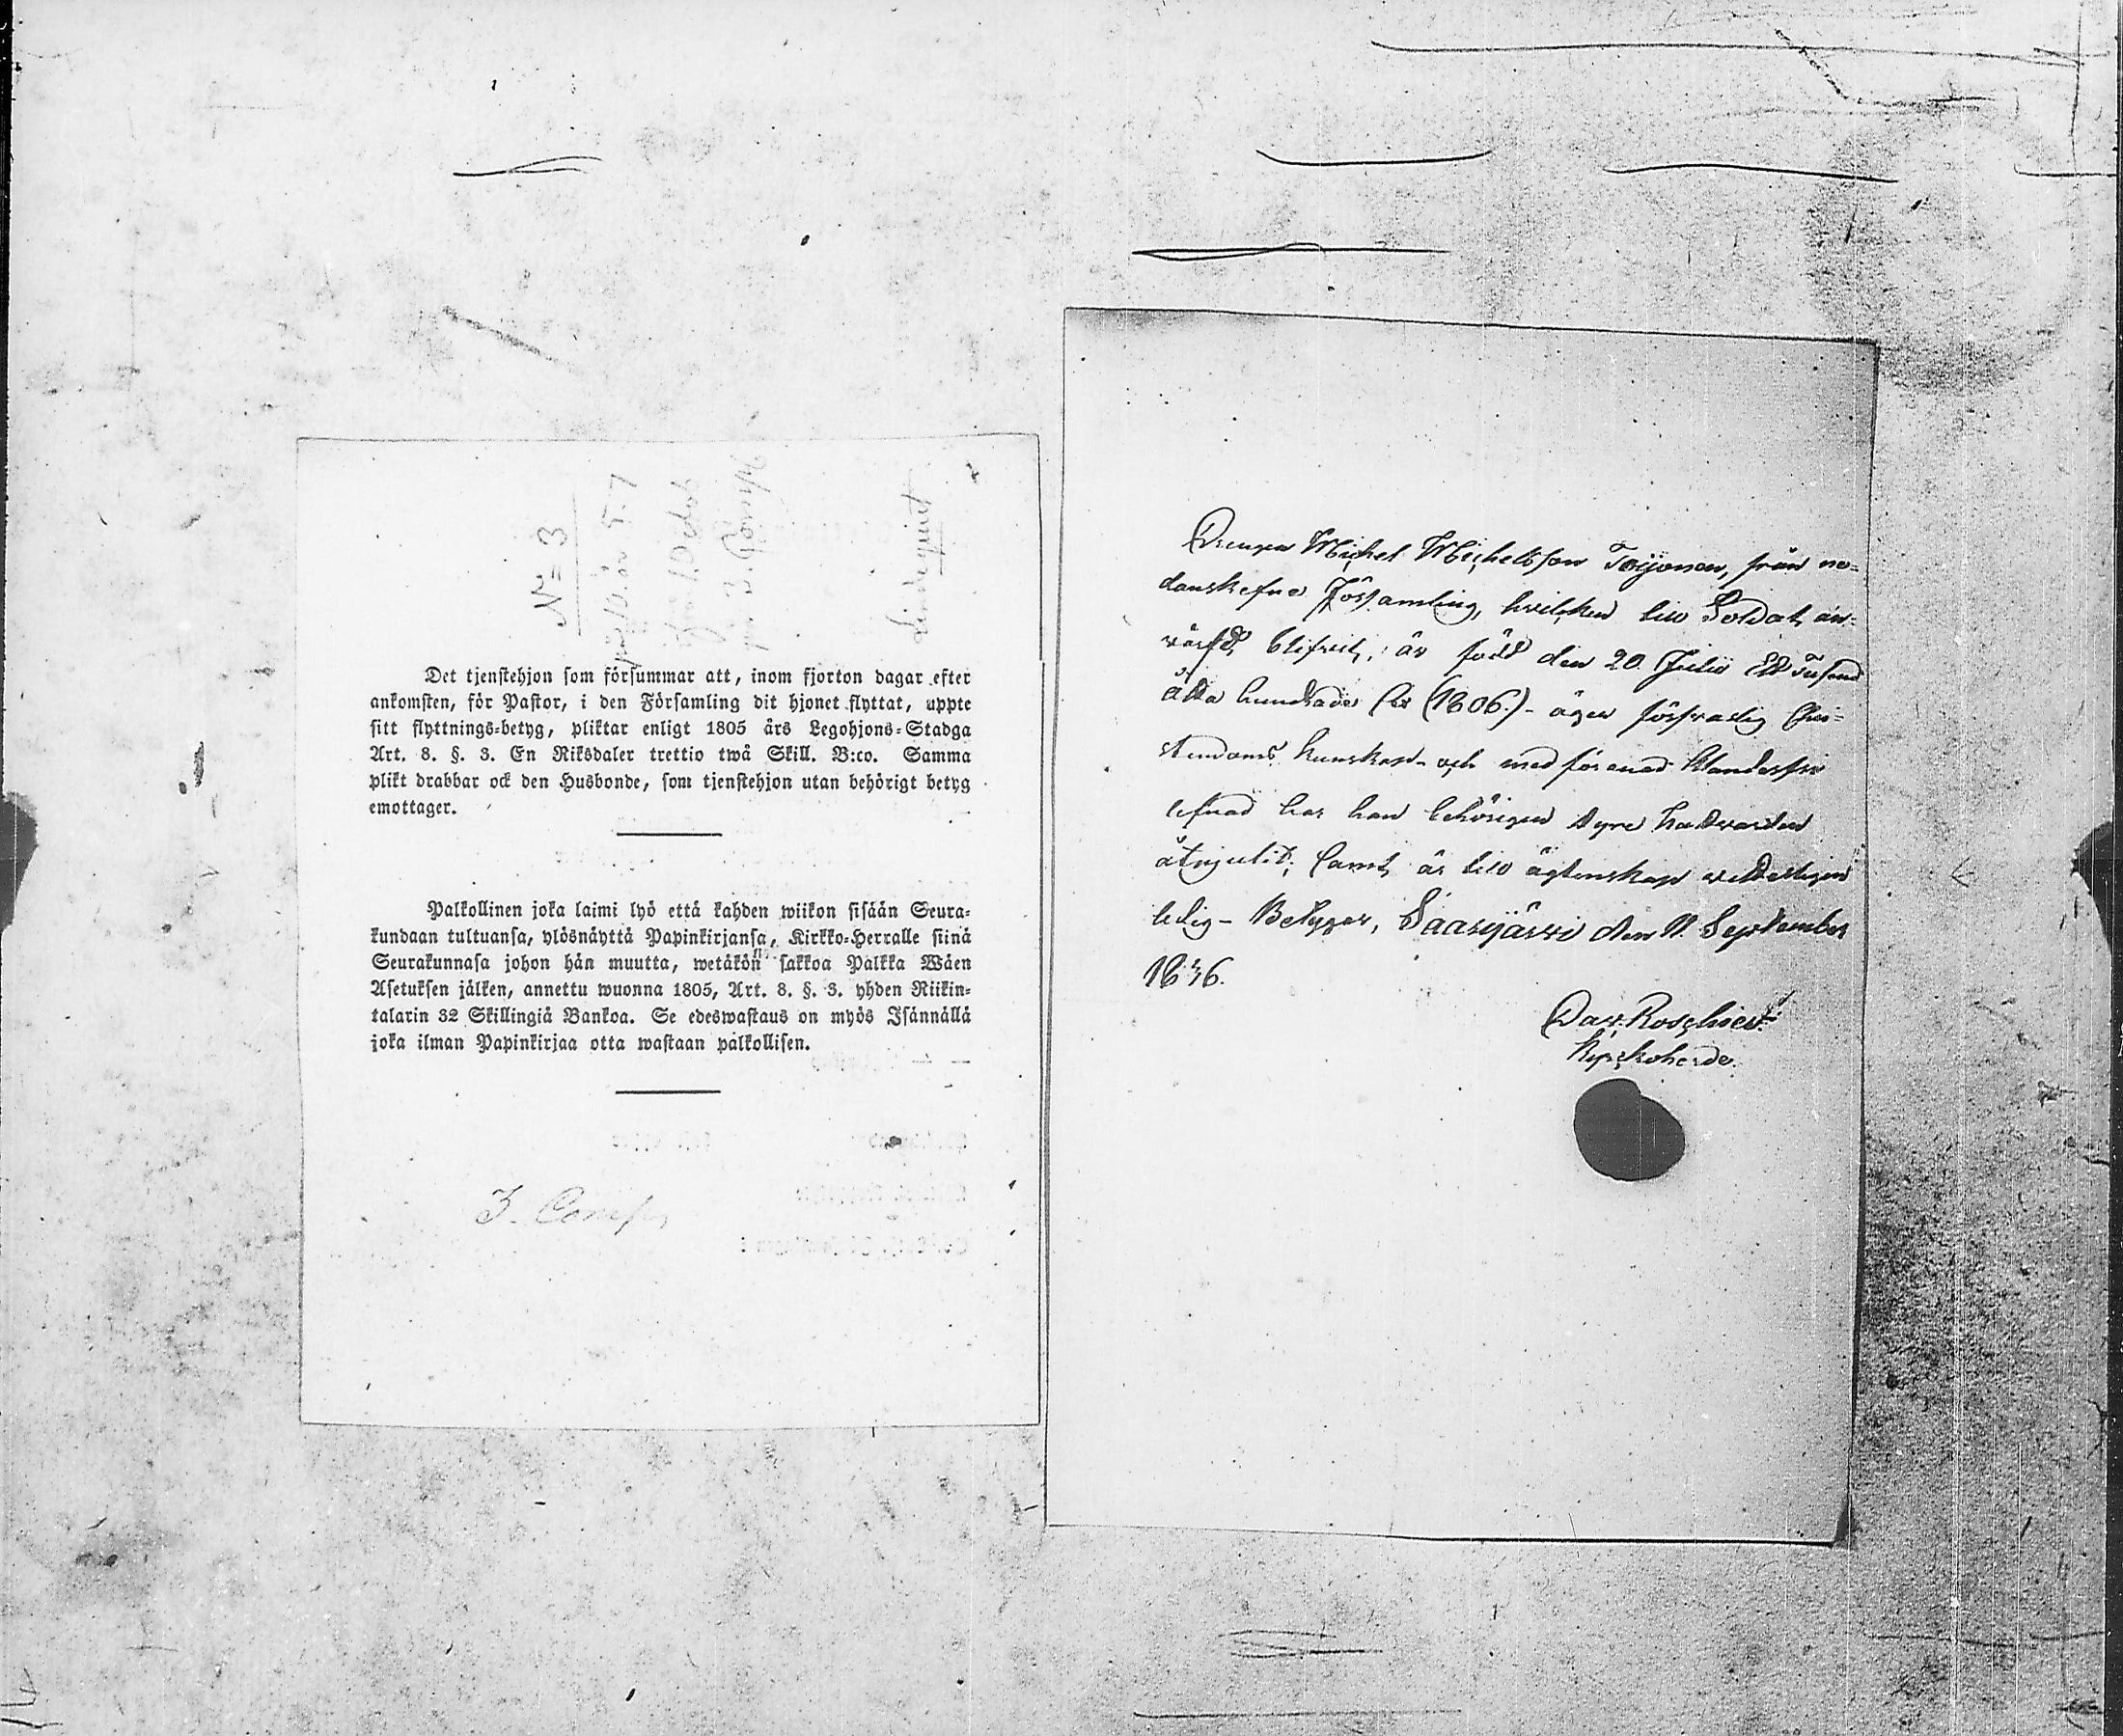 N:o 3
Det tjenstehjon som försummar att, inom fjorton dagar efter
ankomsten, för Pastor, i den Församling dit hjonet flyttat, uppte
sitt flyttnings-betyg, pliktar enligt 1805 års Legohjons-Stadga
Art. 8. §. 3. En Riksdaler trettio twå Skill. B:co. Samma
plikt drabbar ock den Husbonde, som tjenstehjon utan behörigt betyg
emottager.
Palkollinen joka laimi lyö että kahden wiikon sisään Seura-
kundaan tultuansa, ylösnäyttä Papinkirjansa, Kirkko-Herralle siinä
Seurakunnasa johon hän muutta, wetäkön sakkoa Palkka Wäen
Asetuksen jälken, annettu wuonna 1805, Art. 8. §. 3. yhden Riikin-
talarin 32 Skillingiä Bankoa. Se edeswastaus on myös Isännällä
joka ilman Papinkirjaa otta wastaan palkollisen.
3. Comp.
Drengen Michel Michelsson Toijonen, från ne-
danskefne Församling, hvilken till Soldat an-
värfd blifvit, är född den 20 Julii Ett Tusend
åtta hundrade sex (1806.)- äger försvarlig Chri-
stendoms kunskap- och med förenad klanderfri
lefnad har han behörigen dyra Nattvarden
åtnjutit; samt är till ägtenskap
ledig- Betygar, Saarijärvi den 11 September
1836.
Dav. Roschier
Kyrkoherde.